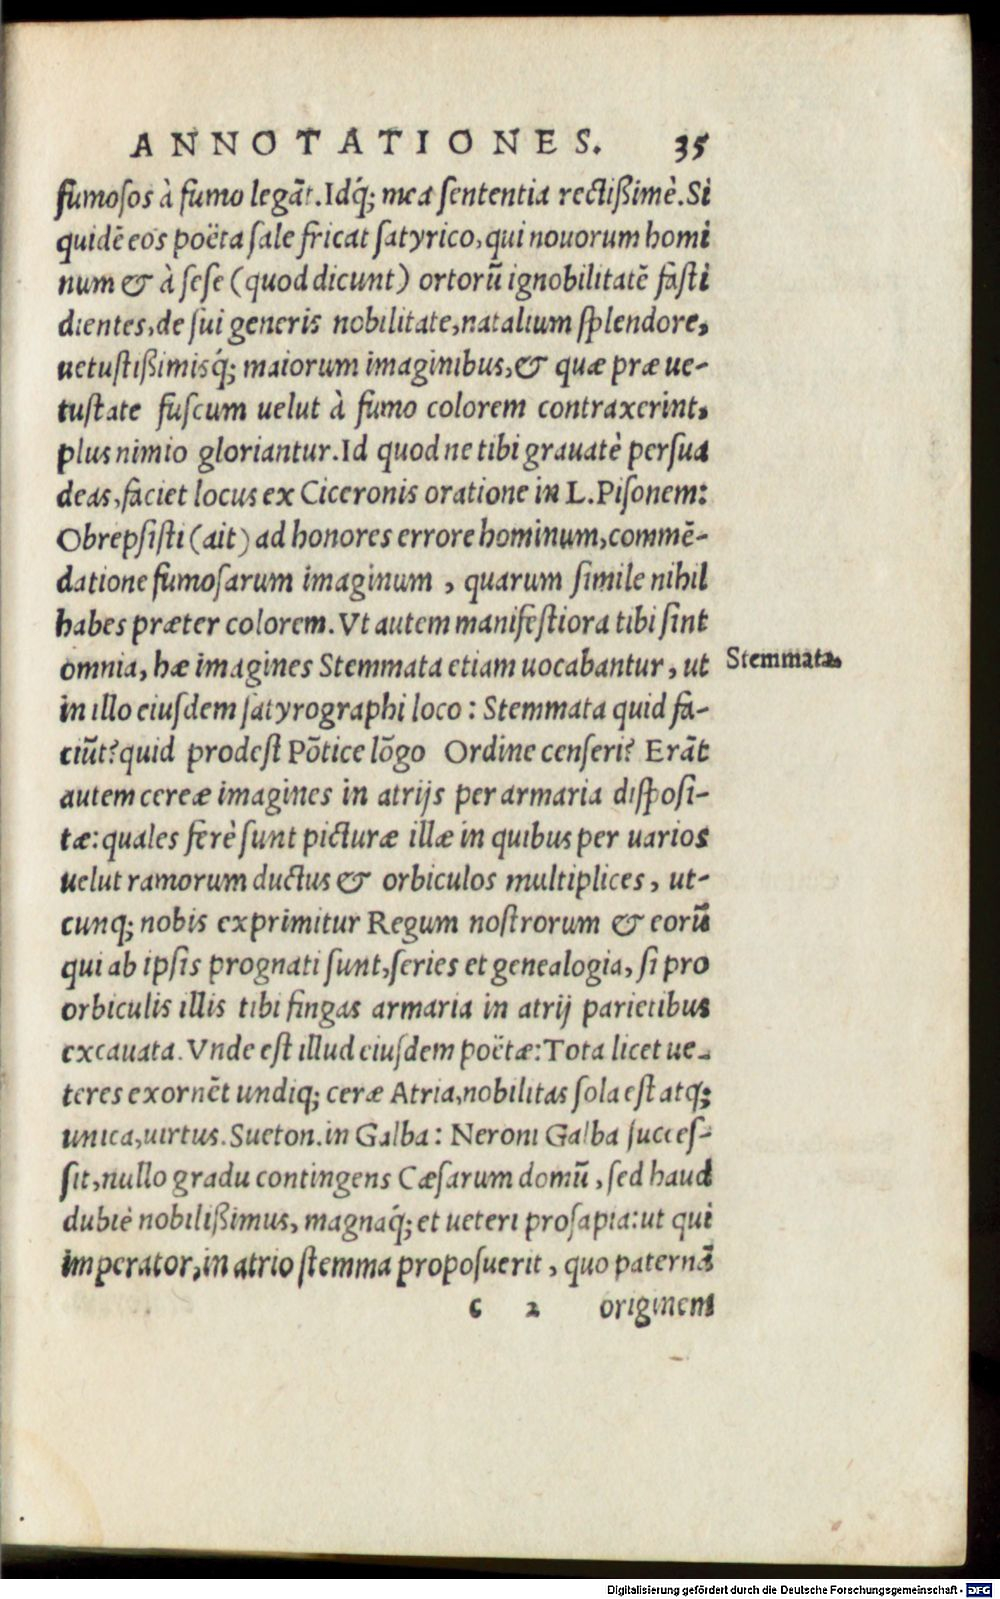 ANNOTATIONES. 35
fumosos à fumo legāt. Idq́; mea sententia rectißimè. Si
quidē eos poëta sale fricat satyrico, qui nouorum homi
num & à sese (quod dicunt) ortorū ignobilitatē fasti
dientes, de sui generis nobilitate, natalium splendore,
uetustißimisq́; maiorum imaginibus, & quæ præ ue-
tustate fuscum uelut à fumo colorem contraxerint,
plus nimio gloriantur. Id quod ne tibi grauatè persua
deas, faciet locus ex Ciceronis oratione in L. Pisonem:
Obrepsisti (ait) ad honores errore hominum, commē-
datione fumosarum imaginum, quarum simile nihil
habes præter colorem. Vt autem manifestiora tibi sint
omnia, hæ imagines Stemmata etiam uocabantur, ut
Stemmata.
in illo eiusdem satyrographi loco: Stemmata quid fa-
ciūt? quid prodest Pōtice lōgo Ordine censeri? Erāt
autem cereæ imagines in atrijs per armaria disposi-
tæ: quales ferè sunt picturæ illæ in quibus per uarios
uelut ramorum ductus & orbiculos multiplices, ut-
cunq; nobis exprimitur Regum nostrorum & eorū
qui ab ipsis prognati sunt, series et genealogia, si pro
orbiculis illis tibi fingas armaria in atrij parietibus
excauata. Vnde est illud eiusdem poëtæ: Tota licet ue-
teres exornēt undiq; ceræ Atria, nobilitas sola est atq́;
unica, uirtus. Sueton. in Galba: Neroni Galba succes-
sit, nullo gradu contingens Cæsarum domū, sed haud
dubiè nobilißimus, magnaq́; et ueteri prosapia: ut qui
imperator, in atrio stemma proposuerit, quo paternā
c 2 originem
Digitalisierung gefördert durch die Deutsche Forschungsgemeinschaft - DFG